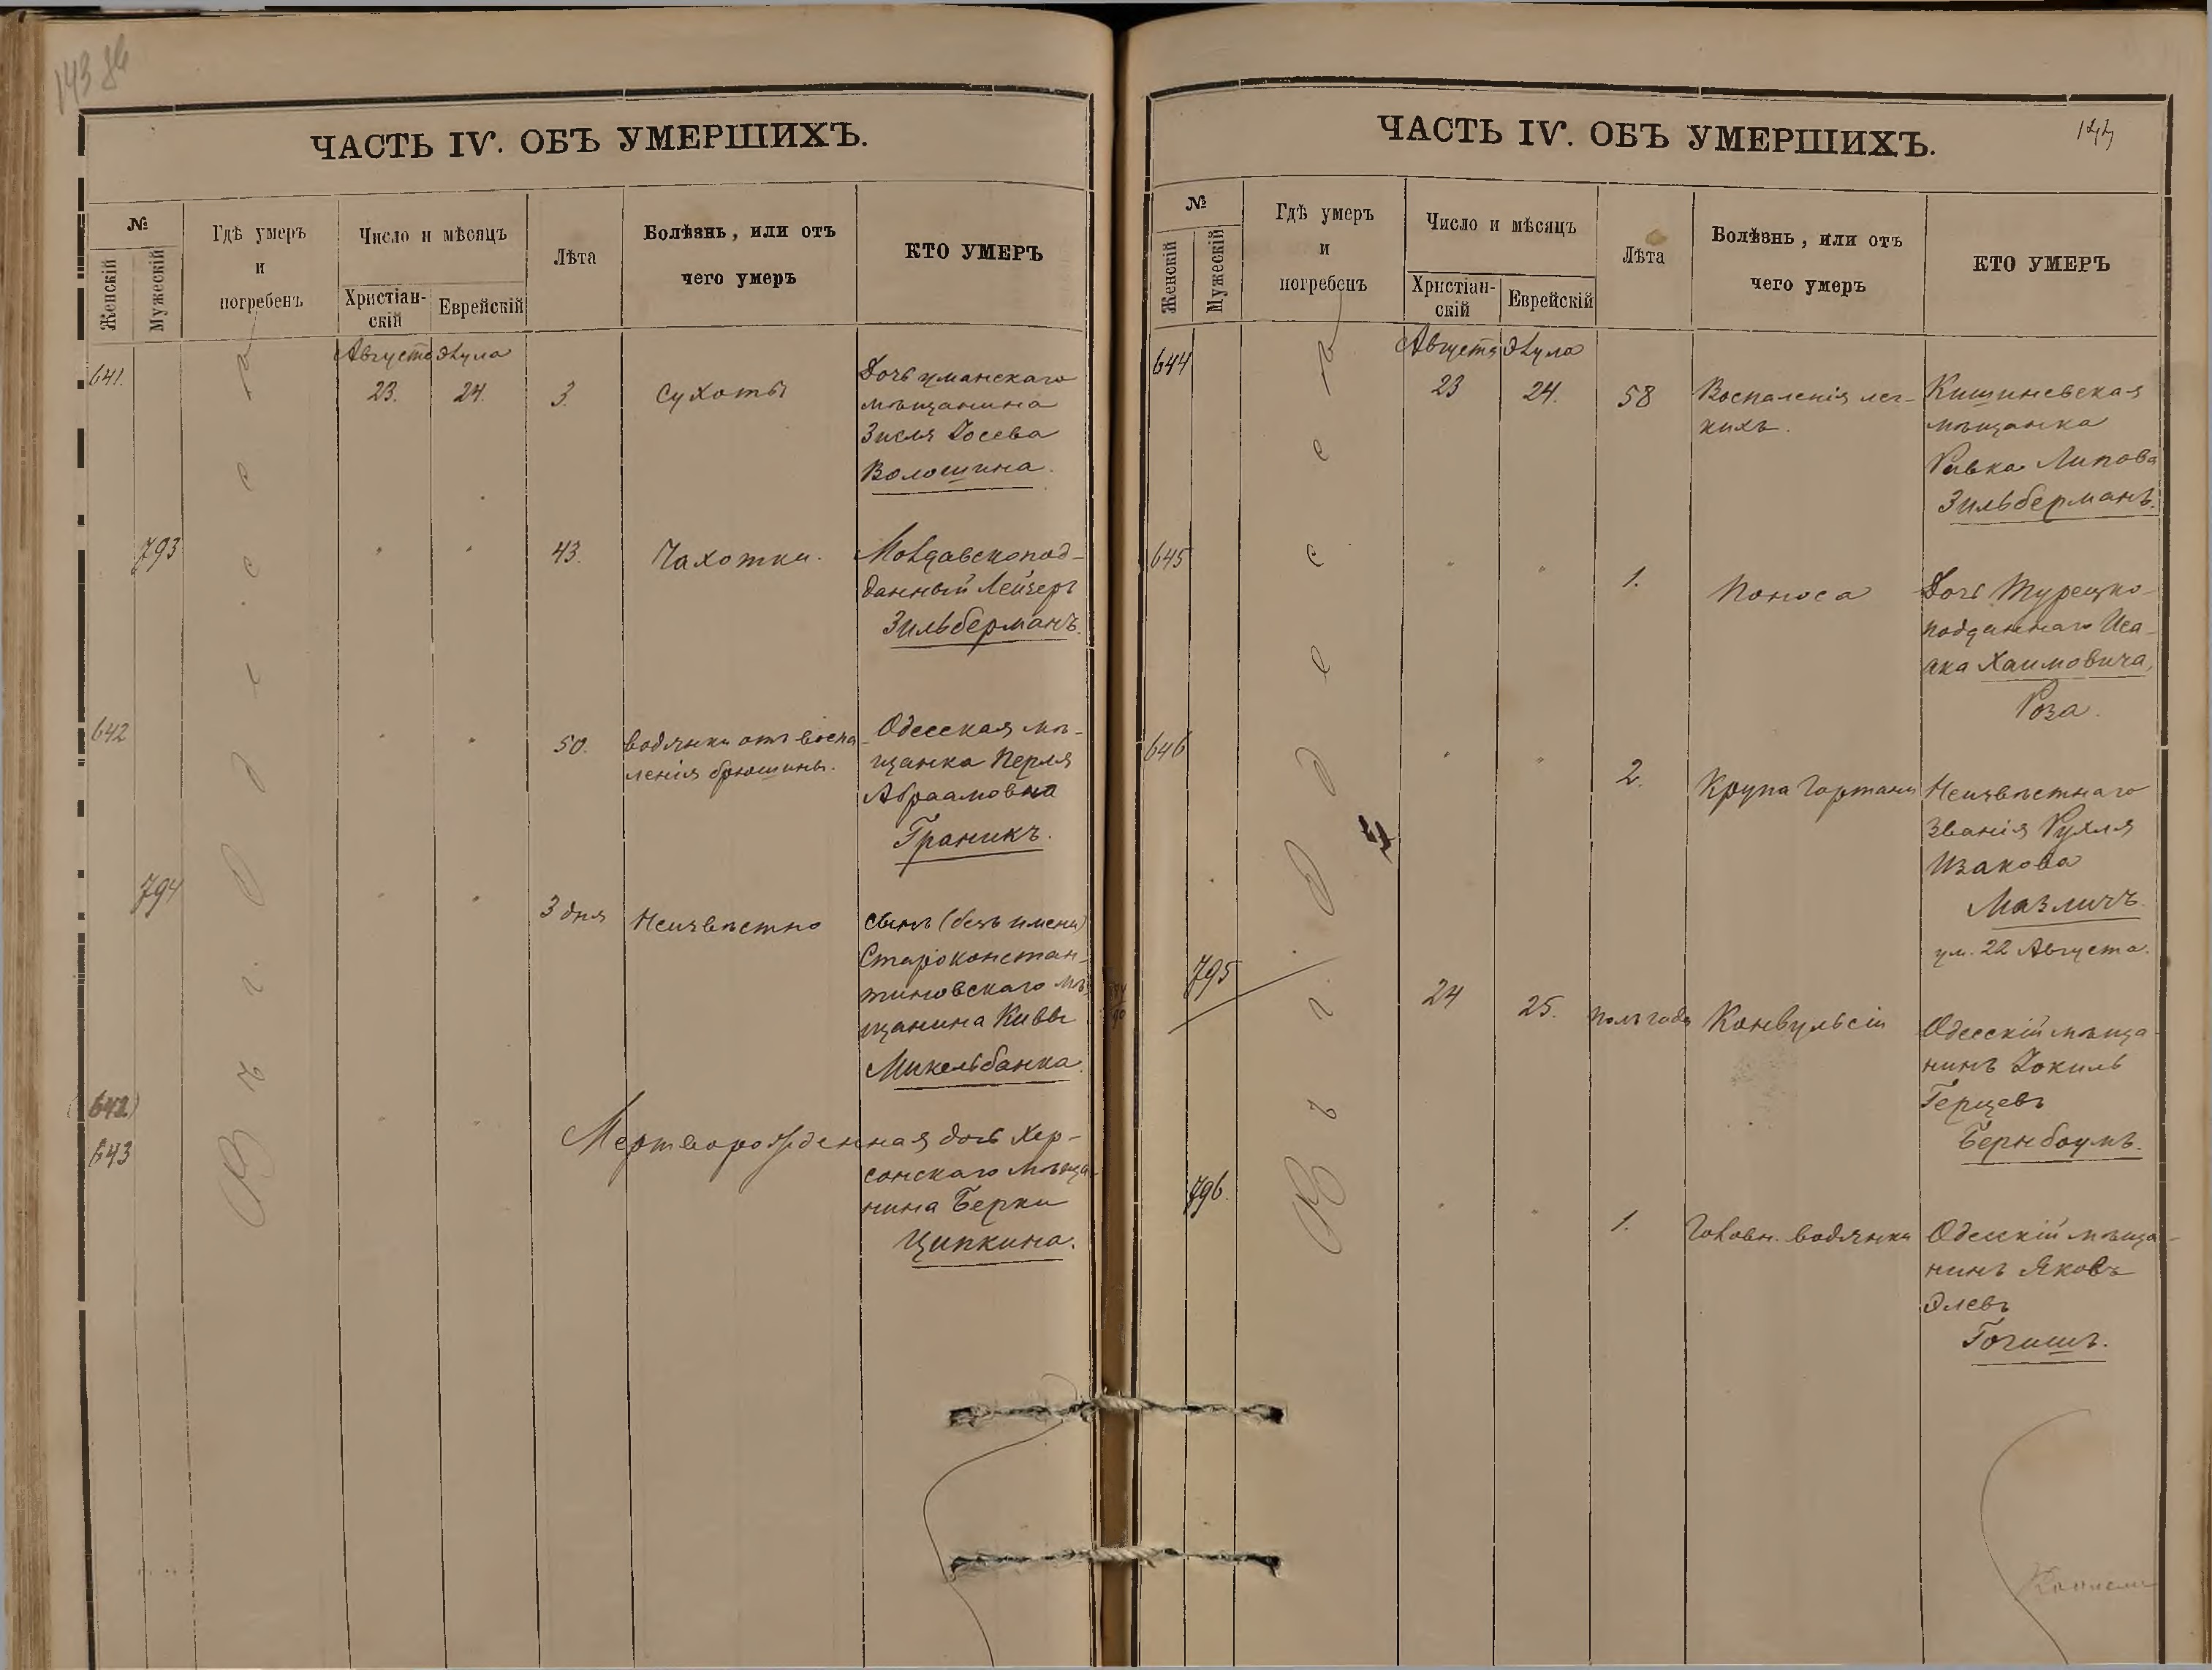 143 об
ЧАСТЬ IV. ОБЪ УМЕРШИХЪ.
№
Женскій
Мужескій
Гдѣ умеръ
и
погребенъ
Число и мѣсяцъ
Христіан-
скій
Еврейскій
Лѣта
Болѣзнь, или отъ
чего умеръ
КТО УМЕРЪ
Въ г. Одессѣ
Августа Элула
641. 23. 24. 3. Сухоты
Дочь уманскаго
мѣщанина
Зисля Іосева
Волошина.
793 " " 43. Чахотки.
Молдавскопод-
данный Лейзеръ
Зильберманъ.
642 " " 50. водянки отъ воспа-
ленія брюшины.
Одесская мѣ-
щанка Перля
Абраамовна
Граникъ.
794 " " 3 дня Неизвѣстно
сынъ (безъ имени)
Староконстан-
тиновскаго мѣ-
щанина Кивы
Микельбанка.
(642)
643 " " Мерتворожденная дочь Хер-
сонскаго мѣща-
нина Берки
Ципкина.
ЧАСТЬ IV. ОБЪ УМЕРШИХЪ.
144
№
Женскій
Мужескій
Гдѣ умеръ
и
погребенъ
Число и мѣсяцъ
Христіан-
скій
Еврейскій
Лѣта
Болѣзнь, или отъ
чего умеръ
КТО УМЕРЪ
Въ г. Одессѣ
Августа Элула
644 23 24. 58 Воспаленія лег-
кихъ.
Кишиневская
мѣщанка
Ривка Липова
Зильберманъ.
645 " " 1. Поноса
Дочь Турецко-
подданнаго Иса-
ака Хаимовича,
Роза.
646 " " 2. Крупа гортани
Неизвѣстнаго
званія Рухля
Изакова
Мазличъ.
ум. 22 Августа.
795 24 25. полъ года Конвульсіи
Одесскій мѣща-
нинъ Іокиль
Герцевъ
Бернбаумъ.
796. " " 1. Головн. водянки
Одесскій мѣща-
нинъ Яковъ
Элевъ
Гогишъ.